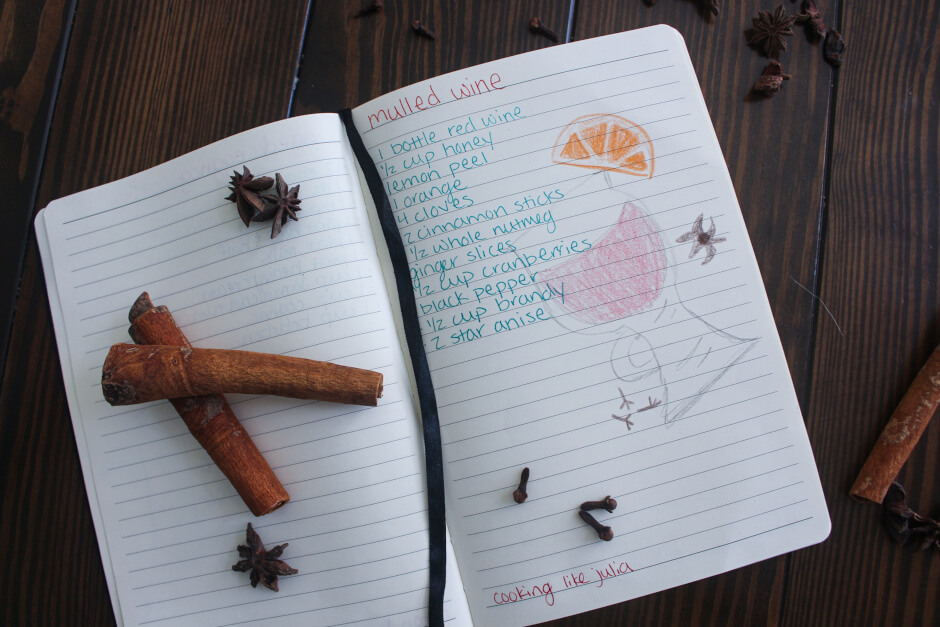 mulled wine
1 bottle red wine
1/2 cup honey
lemon peel
1 orange
4 cloves
2 cinnamon sticks
1/2 whole nutmeg
ginger slices
1/2 cup cranberries
black pepper
1/2 cup brandy
2 star anise
cooking like julia